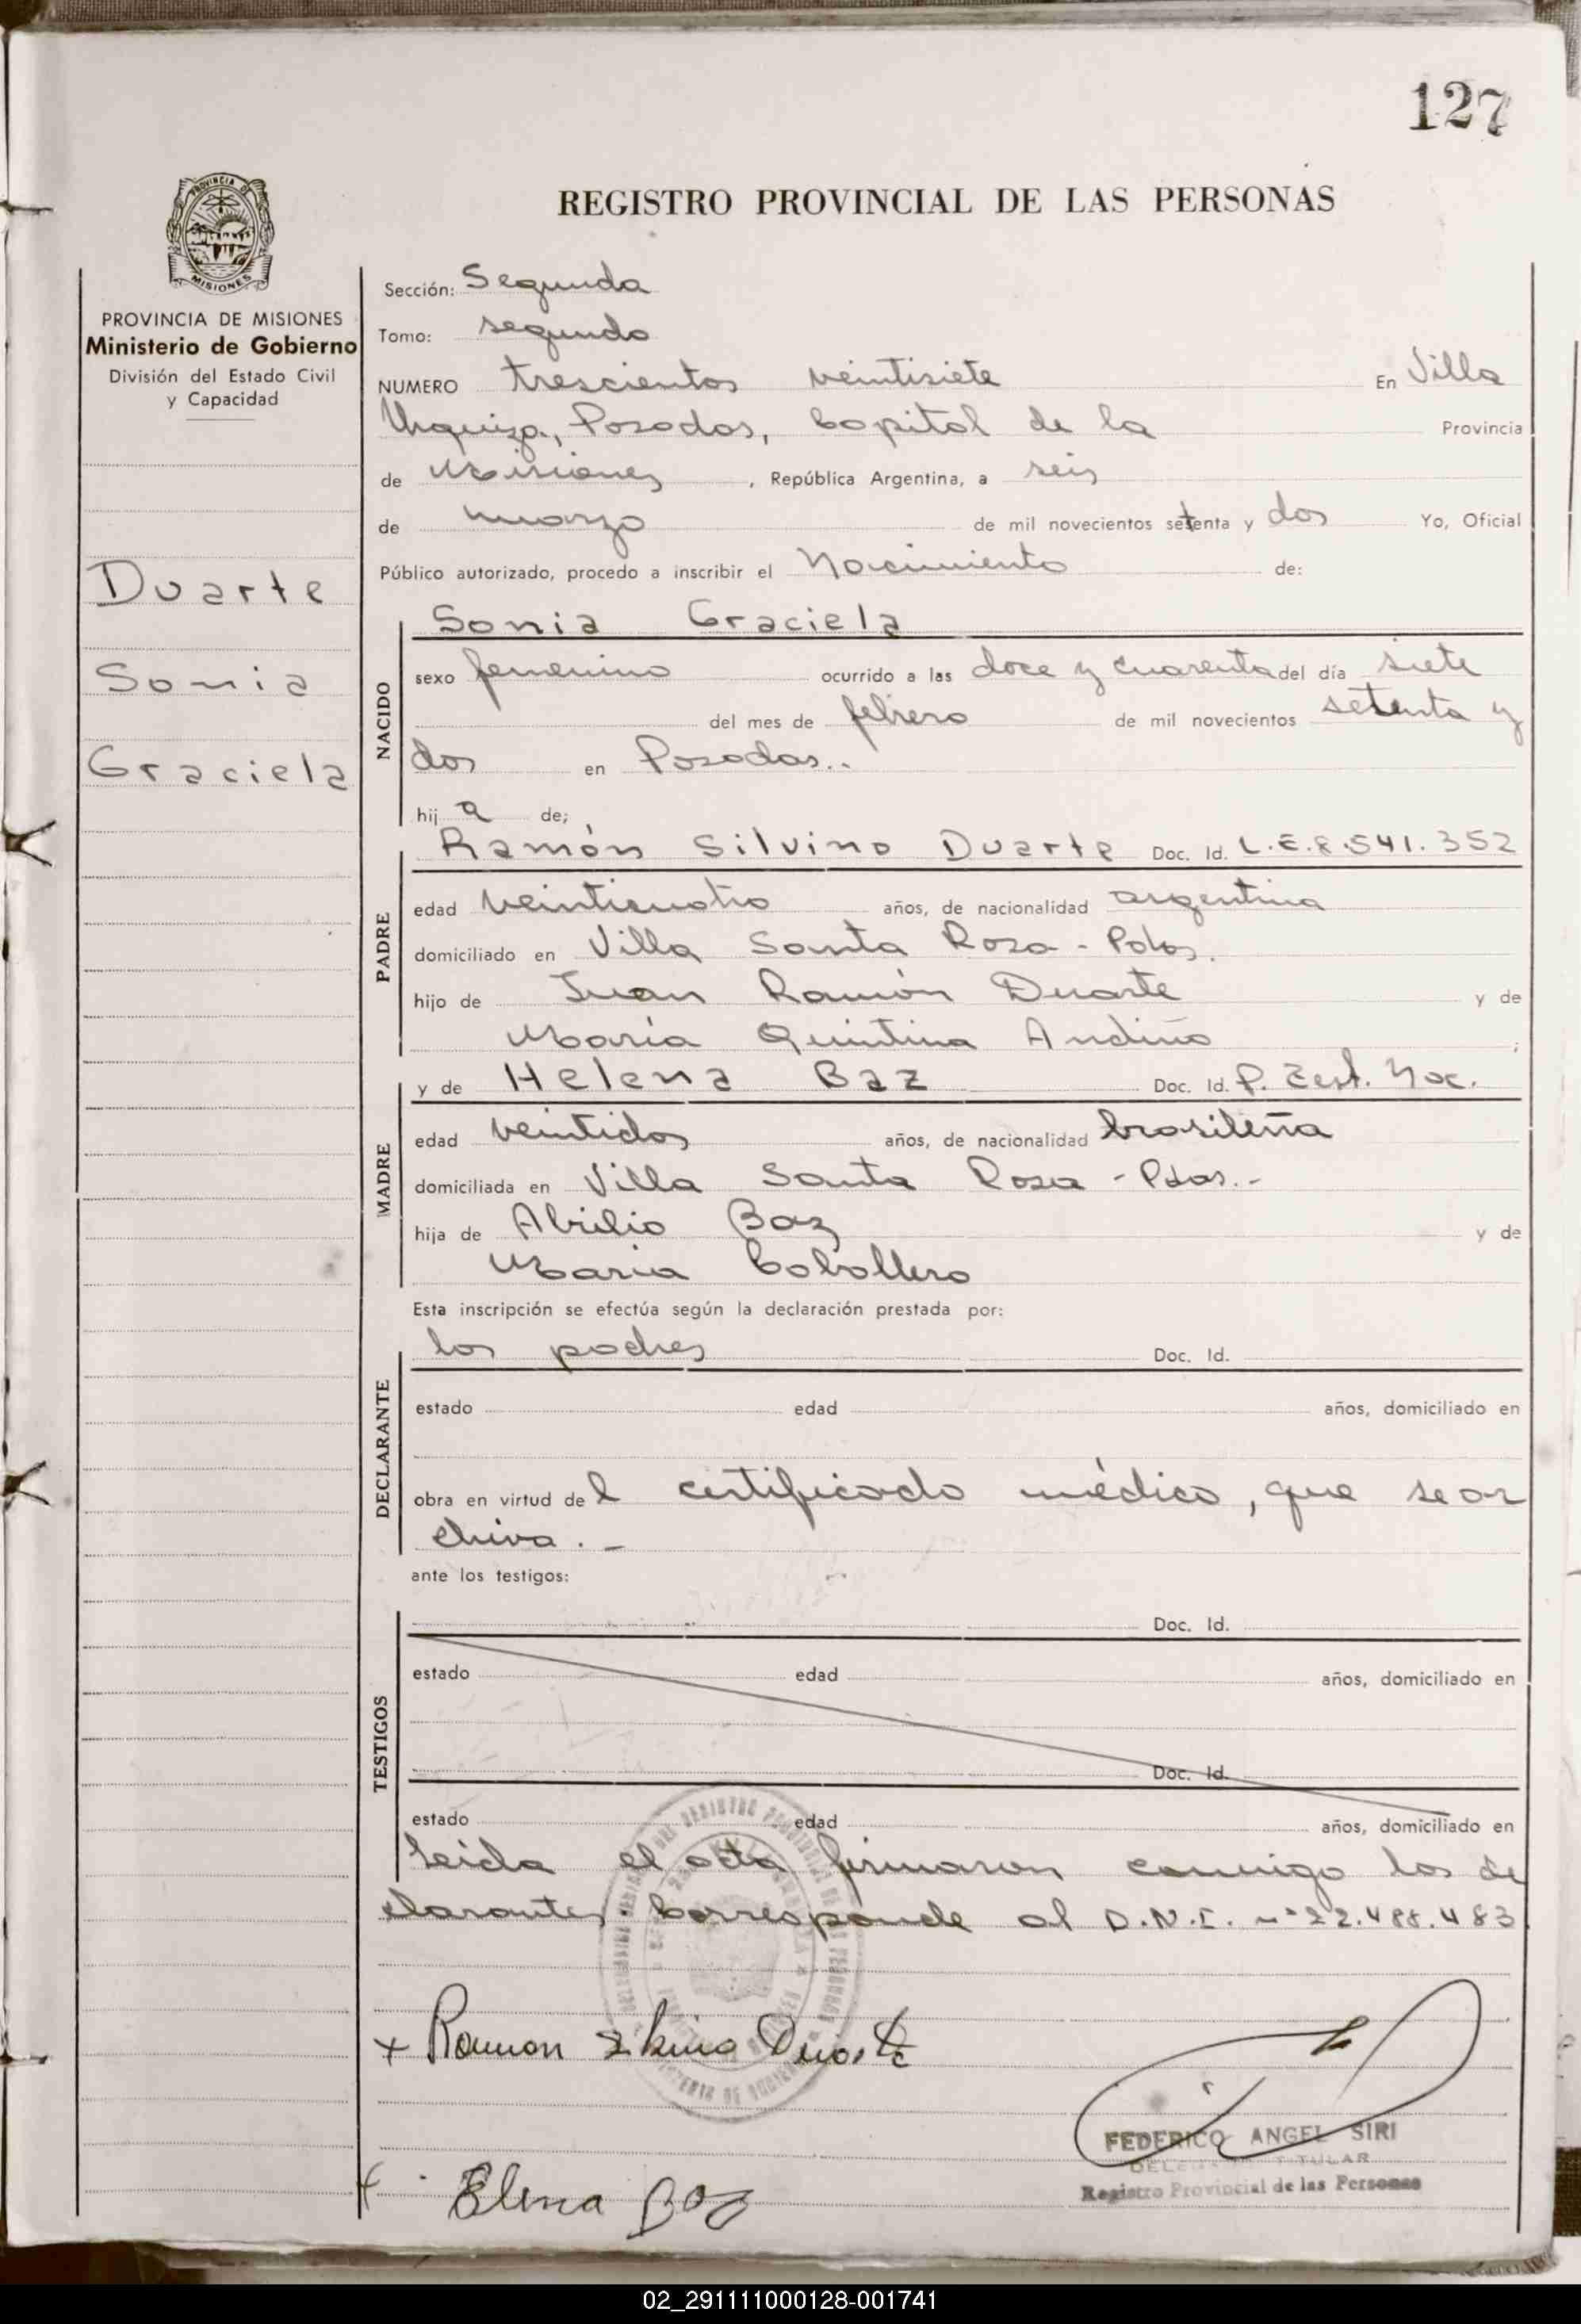 127
REGISTRO PROVINCIAL DE LAS PERSONAS
PROVINCIA DE
MISIONES
PROVINCIA DE MISIONES
Ministerio de Gobierno
División del Estado Civil
y Capacidad
Duarte
Sonia
Graciela
Sección: Segunda
Tomo: segundo
NUMERO trescientos veintisiete En Villa
Urquiza, Posadas, Capital de la Provincia
de Misiones, República Argentina, a seis
de marzo de mil novecientos setenta y dos Yo, Oficial
Público autorizado, procedo a inscribir el Nacimiento de:
NACIDO
Sonia Graciela
sexo femenino ocurrido a las doce y cuarenta del día siete
del mes de febrero de mil novecientos setenta y
dos en Posadas..
hij a de;
PADRE
Ramón Silvino Duarte Doc. Id. L.E.8.541.352
edad veinticuatro años, de nacionalidad argentina
domiciliado en Villa Santa Rosa - Pdas.
hijo de Juan Ramón Duarte y de
María Quintina Andiño ;
MADRE
y de Helena Baz Doc. Id. P. Cert. Nac.
edad veintidos años, de nacionalidad brasileña
domiciliada en Villa Santa Rosa - Pdas.-
hija de Abilio Baz y de
Maria Caballero
Esta inscripción se efectúa según la declaración prestada por:
DECLARANTE
los padres Doc. Id.
estado edad años, domiciliado en
obra en virtud de l certificado médico, que se ar
chiva. -
ante los testigos:
TESTIGOS
Doc. Id.
estado edad años, domiciliado en
Doc. Id.
estado edad años, domiciliado en
Leida el acta firmaron conmigo los de
clarantes Corresponde al D.N.I. nº 22.488.483
x Ramon Silvino Duarte
FEDERICO ANGEL SIRI
TITULAR
Registro Provincial de las Personas
x Elena Baz
02_291111000128-001741